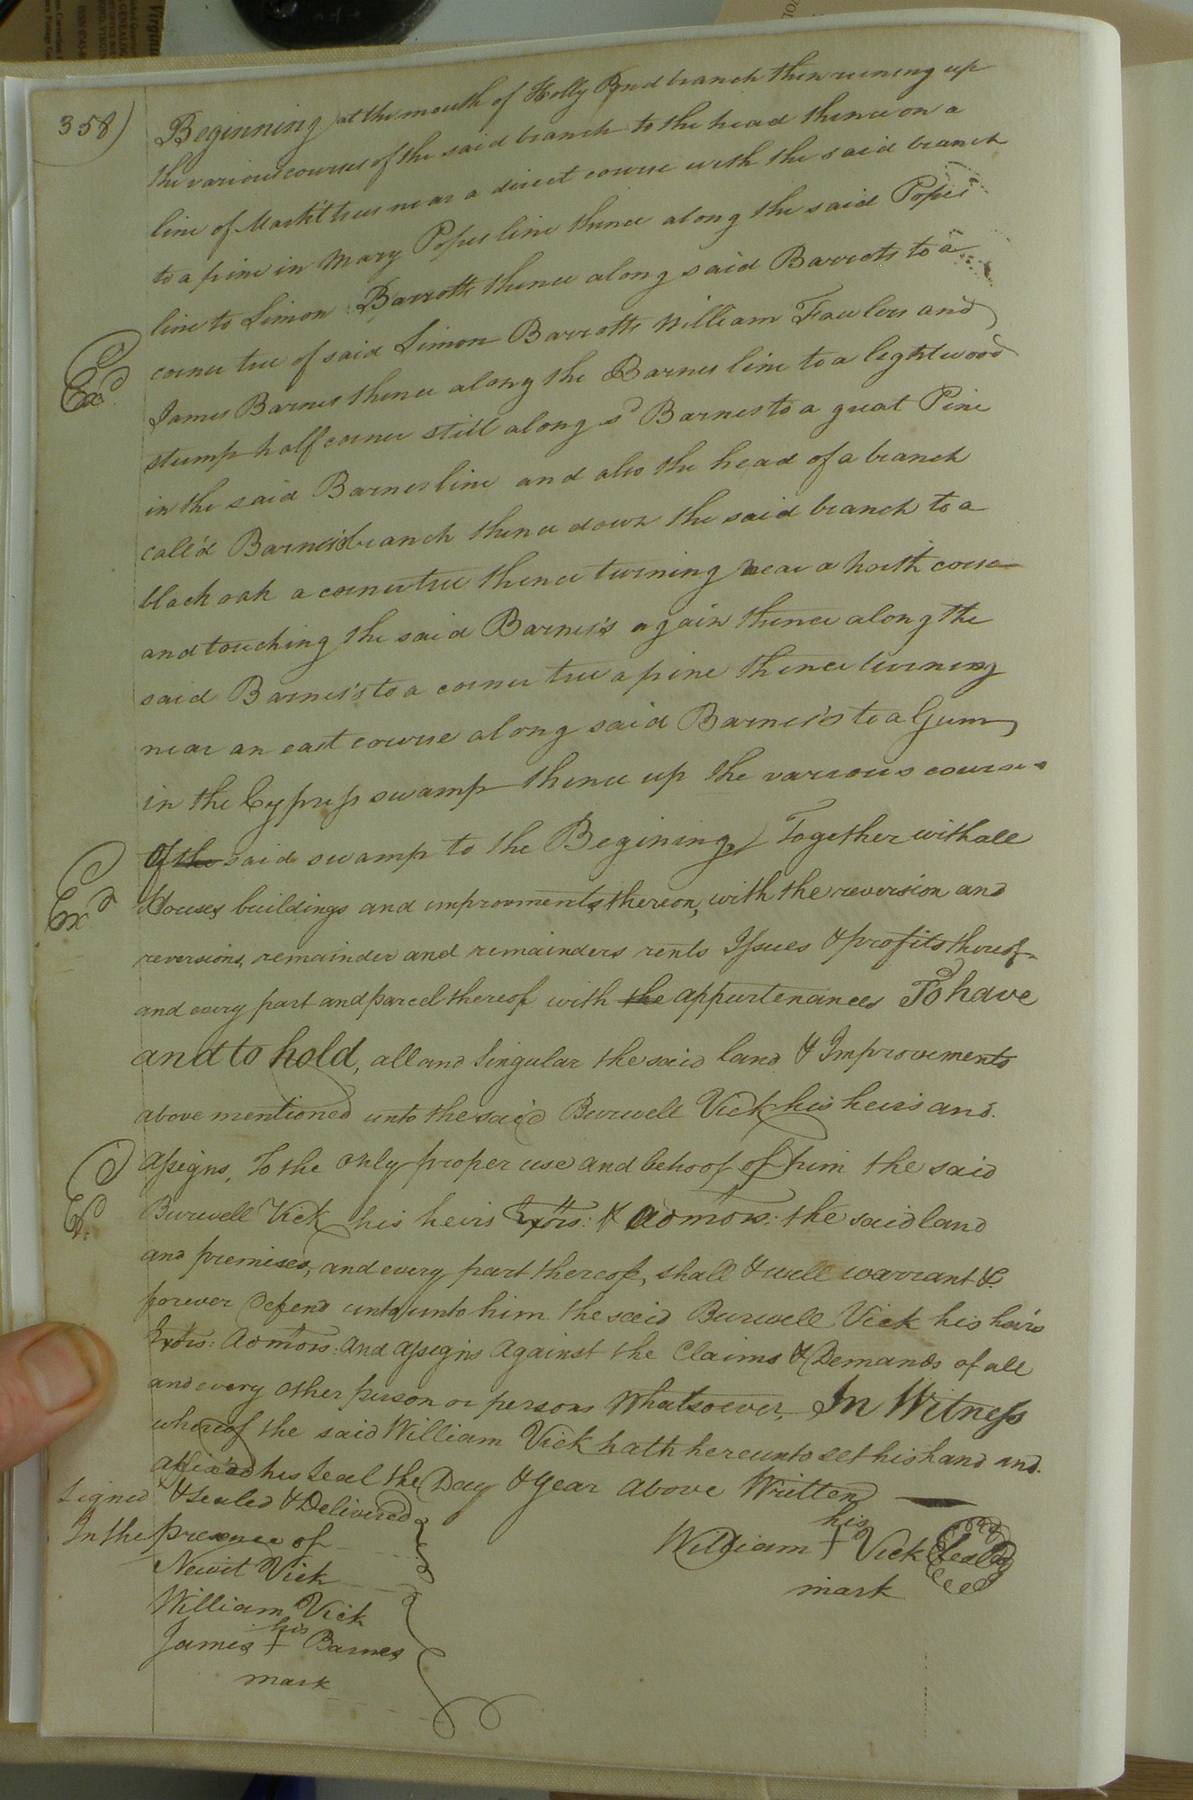 358)
Beginning at the mouth of Holly Pond branch then runing up
the various courses of the said branch to the head thence on a
line of Markt trees near a direct course with the said branch
to a pine in Mary Popes line thence along the said Popes
line to Simon Barrotts thence along said Barrots to a
corner tree of said Simon Barrotts William Fawlers and
James Barnes thence along the Barnes line to a lightwood
stump half corner still along sd Barnes to a great Pine
in the said Barnes line and also the head of a branch
call'd Barnes's branch thence down the said branch to a
black oak a corner tree thence turning near a North corse
and touching the said Barnes's again thence along the
said Barnes's to a corner tree a pine thence turning
near an east course along said Barnes's to a Gum
in the Cypress swamp thence up the various courses
Of the said swamp to the Begining Together with all
Houses buildings and improvments thereon, with the reversion and
reversions, remainder and remainders rents Issues & profits thereof
and every part and parcel thereof with the appurtenances To have
and to hold, all and Singular the said land & Improvements
above mentioned unto the said Burwell Vick his heirs and
Assigns, To the only proper use and behoof of him the said
Burwell Vick his heirs Extrs: & Admors: the said land
and premises, and every part thereof, shall & will warrant &
forever Defend unto unto him the said Burwell Vick his heirs
Extrs: Admors: And Assigns Against the Claims & Demands of all
and every other person or persons Whatsoever, In Witness
whereof the said William Vick hath hereunto set his hand and
affixed his Seal the Day & Year Above Written
Signed & Sealed & Delivered
In the presence of
Newit Vick
William Vick
his
James + Barnes
mark
his
William + Vick Seal
mark
Exd
Exd
Ex.